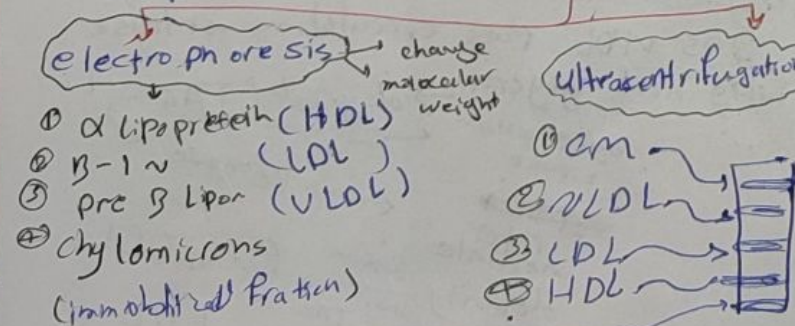 electrophoresis → change
molocular
weight
① α lipoprotein (HDL)
② B-1 ~ (LDL)
③ pre B lipor (VLDL)
④ chylomicrons
(immobolized fration)
Ultrasentrifugation
① cm
② VLDL
③ LDL
④ HDL